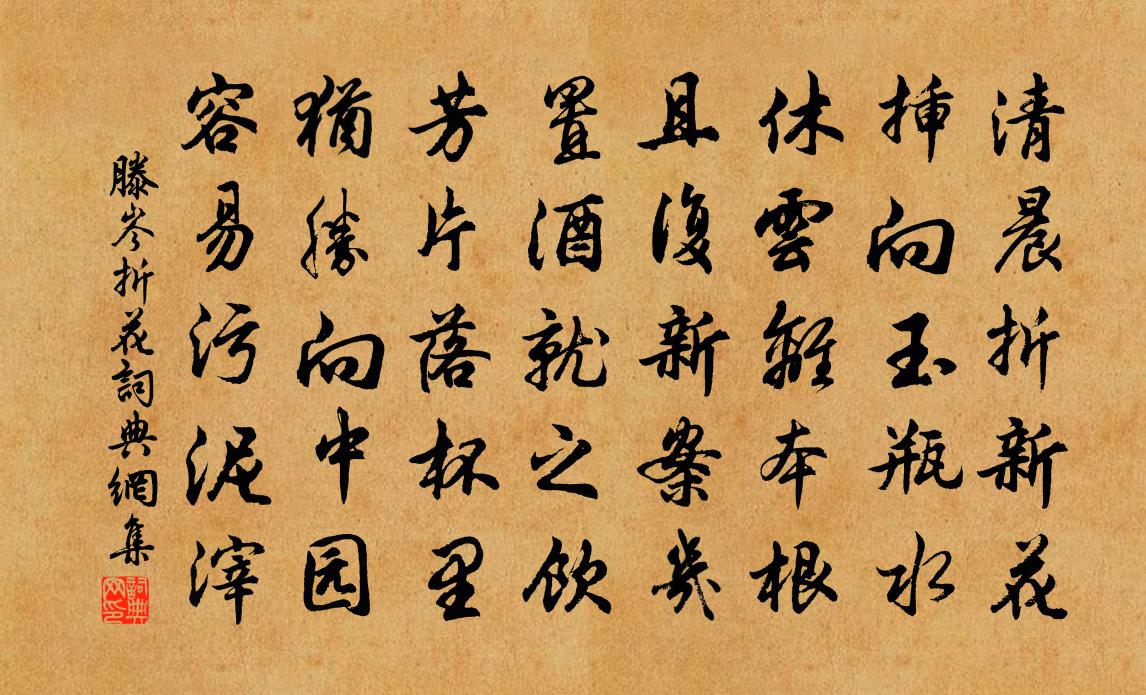 清晨折新花
揷向玉瓶水
休雲離本根
且復新案幾
置酒就之飲
芳片落杯里
猶勝向中园
容易污泥滓
滕岑折花詞典網集
詞典网印